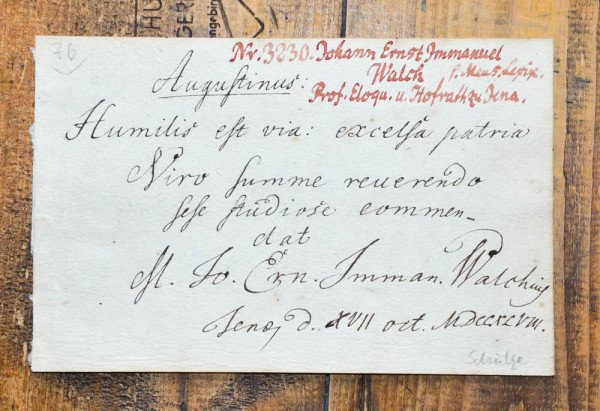 76
Nr. 3230. Johann Ernst Immanuel
Walch s. Meus. Lexic.
Prof. Eloqu. u. Hofrath zu Jena.
Augustinus:
Humilis est via: excelsa patria
Viro summe reuerendo
sese studiose commen-
dat
M. Jo. Ern. Imman. Walchius
Jenæ, d. XVII oct. MDCCXLVIII.
Schulze